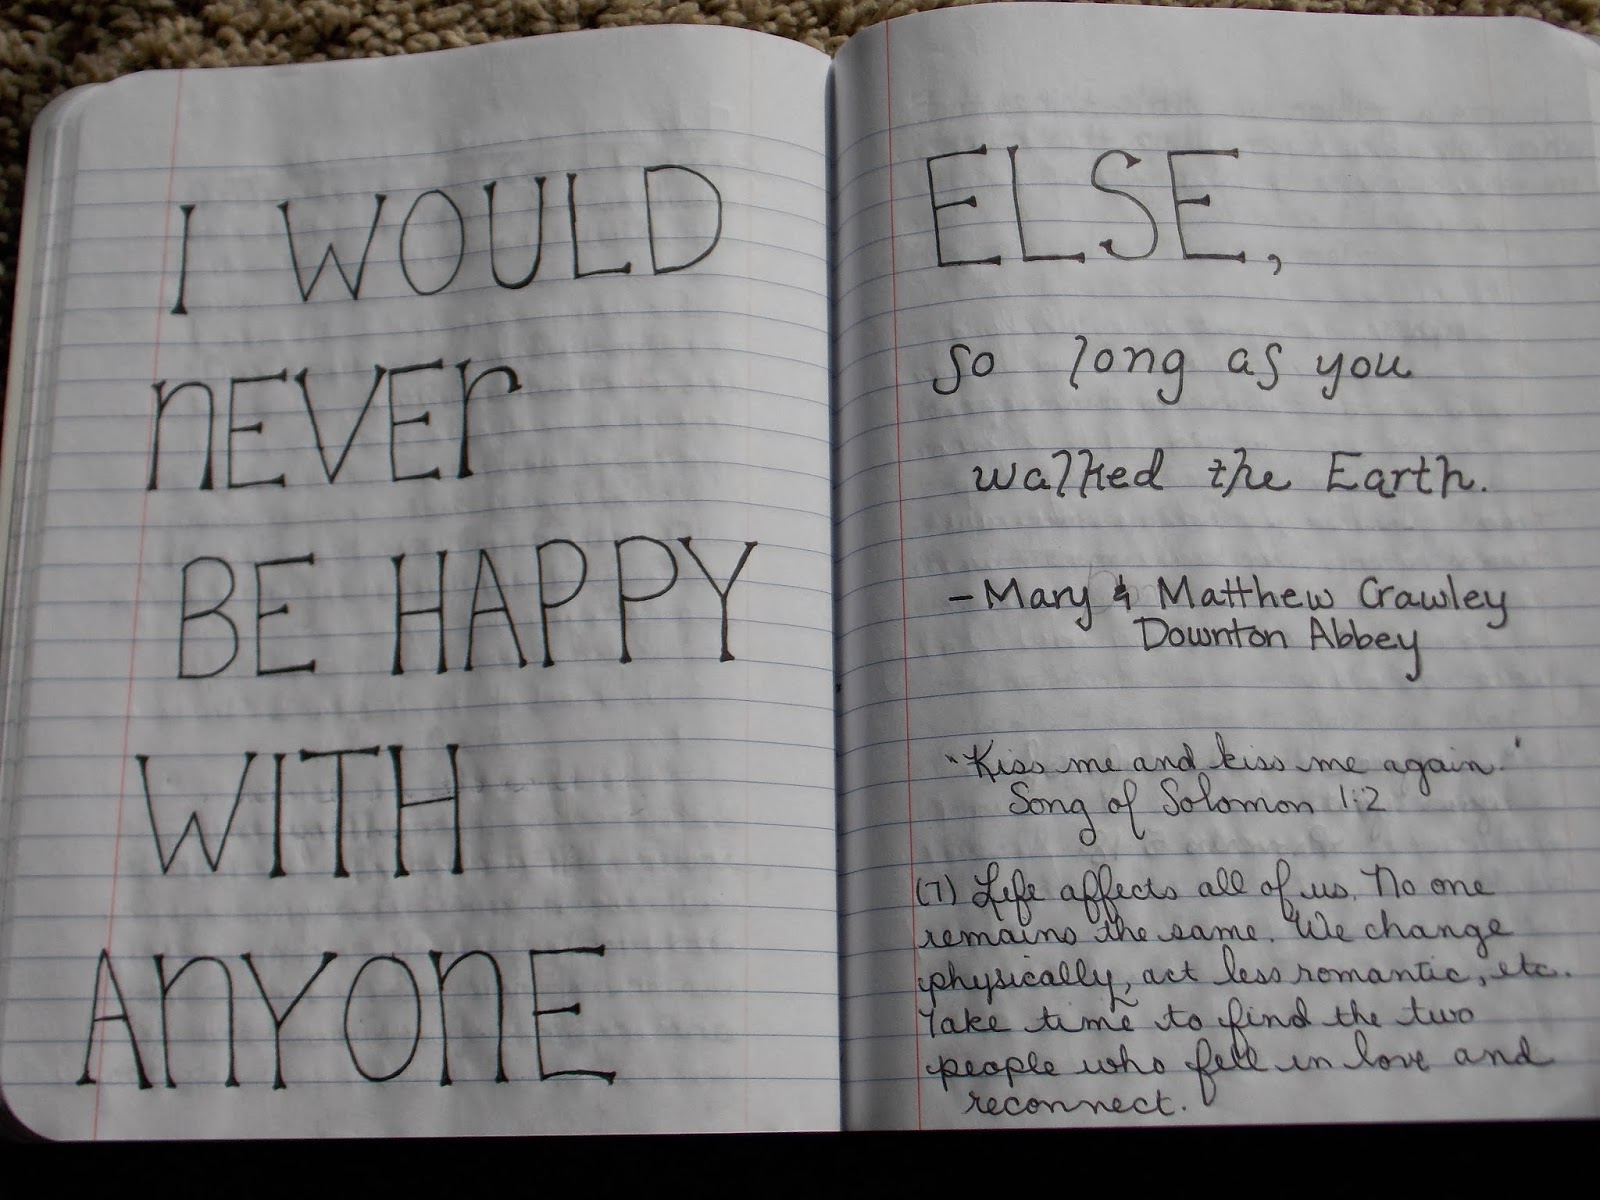 I WOULD
nEVEr
BE HAPPY
WITH
AnYOnE
ELSE,
so long as you
walked the Earth.
- Mary & Matthew Crawley
Downton Abbey
"Kiss me and kiss me again."
Song of Solomon 1:2
(7) Life affects all of us. No one
remains the same. We change
physically, act less romantic, etc.
Take time to find the two
people who fell in love and
reconnect.